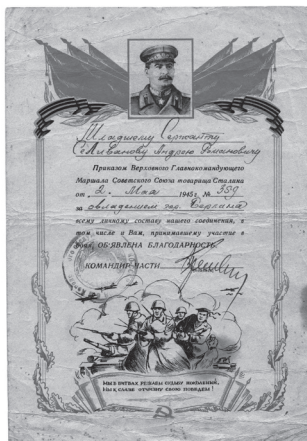 Младшему Сержанту
Селиванову Андрею Романовичу
Приказом Верховного Главнокомандующего
Маршала Советского Союза товарища Сталина
от 2. Мая 1945 г. № 359
за овладение гор. Берлина
всему личному составу нашего соединения, в
том числе и Вам, принимавшему участие в
боях, ОБ'ЯВЛЕНА БЛАГОДАРНОСТЬ.
КОМАНДИР ЧАСТИ
МЫ В БИТВАХ РЕШАЕМ СУДЬБУ ПОКОЛЕНИЙ,
МЫ К СЛАВЕ ОТЧИЗНУ СВОЮ ПОВЕДЕМ!